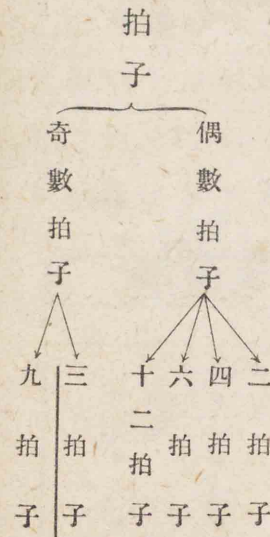 拍子
偶數拍子
奇數拍子
二拍子
四拍子
六拍子
十二拍子
三拍子
九拍子